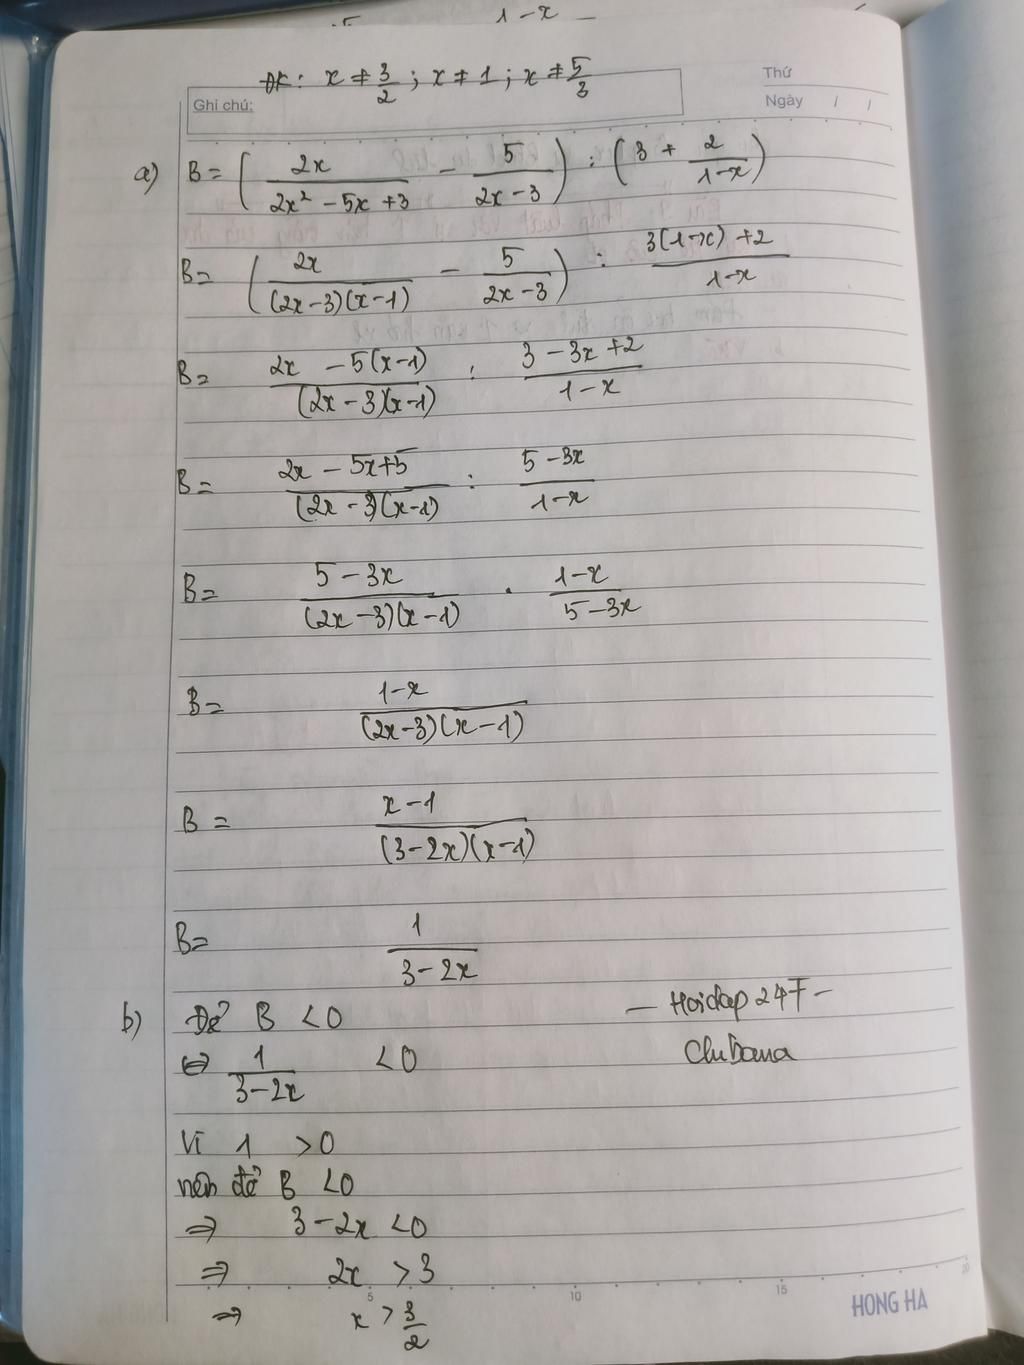 1-x
ĐK: x ≠ 3/2 ; x ≠ 1 ; x ≠ 5/3
Thứ
Ghi chú:
Ngày / /
a) B = ( 2x/(2x² - 5x + 3) - 5/(2x - 3) ) : ( 3 + 2/(1-x) )
B = ( 2x/((2x-3)(x-1)) - 5/(2x-3) ) : (3(1-x) + 2)/(1-x)
B = (2x - 5(x-1))/((2x-3)(x-1)) : (3 - 3x + 2)/(1-x)
B = (2x - 5x + 5)/((2x-3)(x-1)) : (5 - 3x)/(1-x)
B = (5 - 3x)/((2x-3)(x-1)) . (1-x)/(5-3x)
B = (1-x)/((2x-3)(x-1))
B = (x-1)/((3-2x)(x-1))
B = 1/(3-2x)
b) Để B < 0
— Hoidap247 —
⇔ 1/(3-2x) < 0
Vì 1 > 0
nên để B < 0
⇒ 3 - 2x < 0
⇒ 2x > 3
⇒ x > 3/2
5 10 15 20
HONG HA